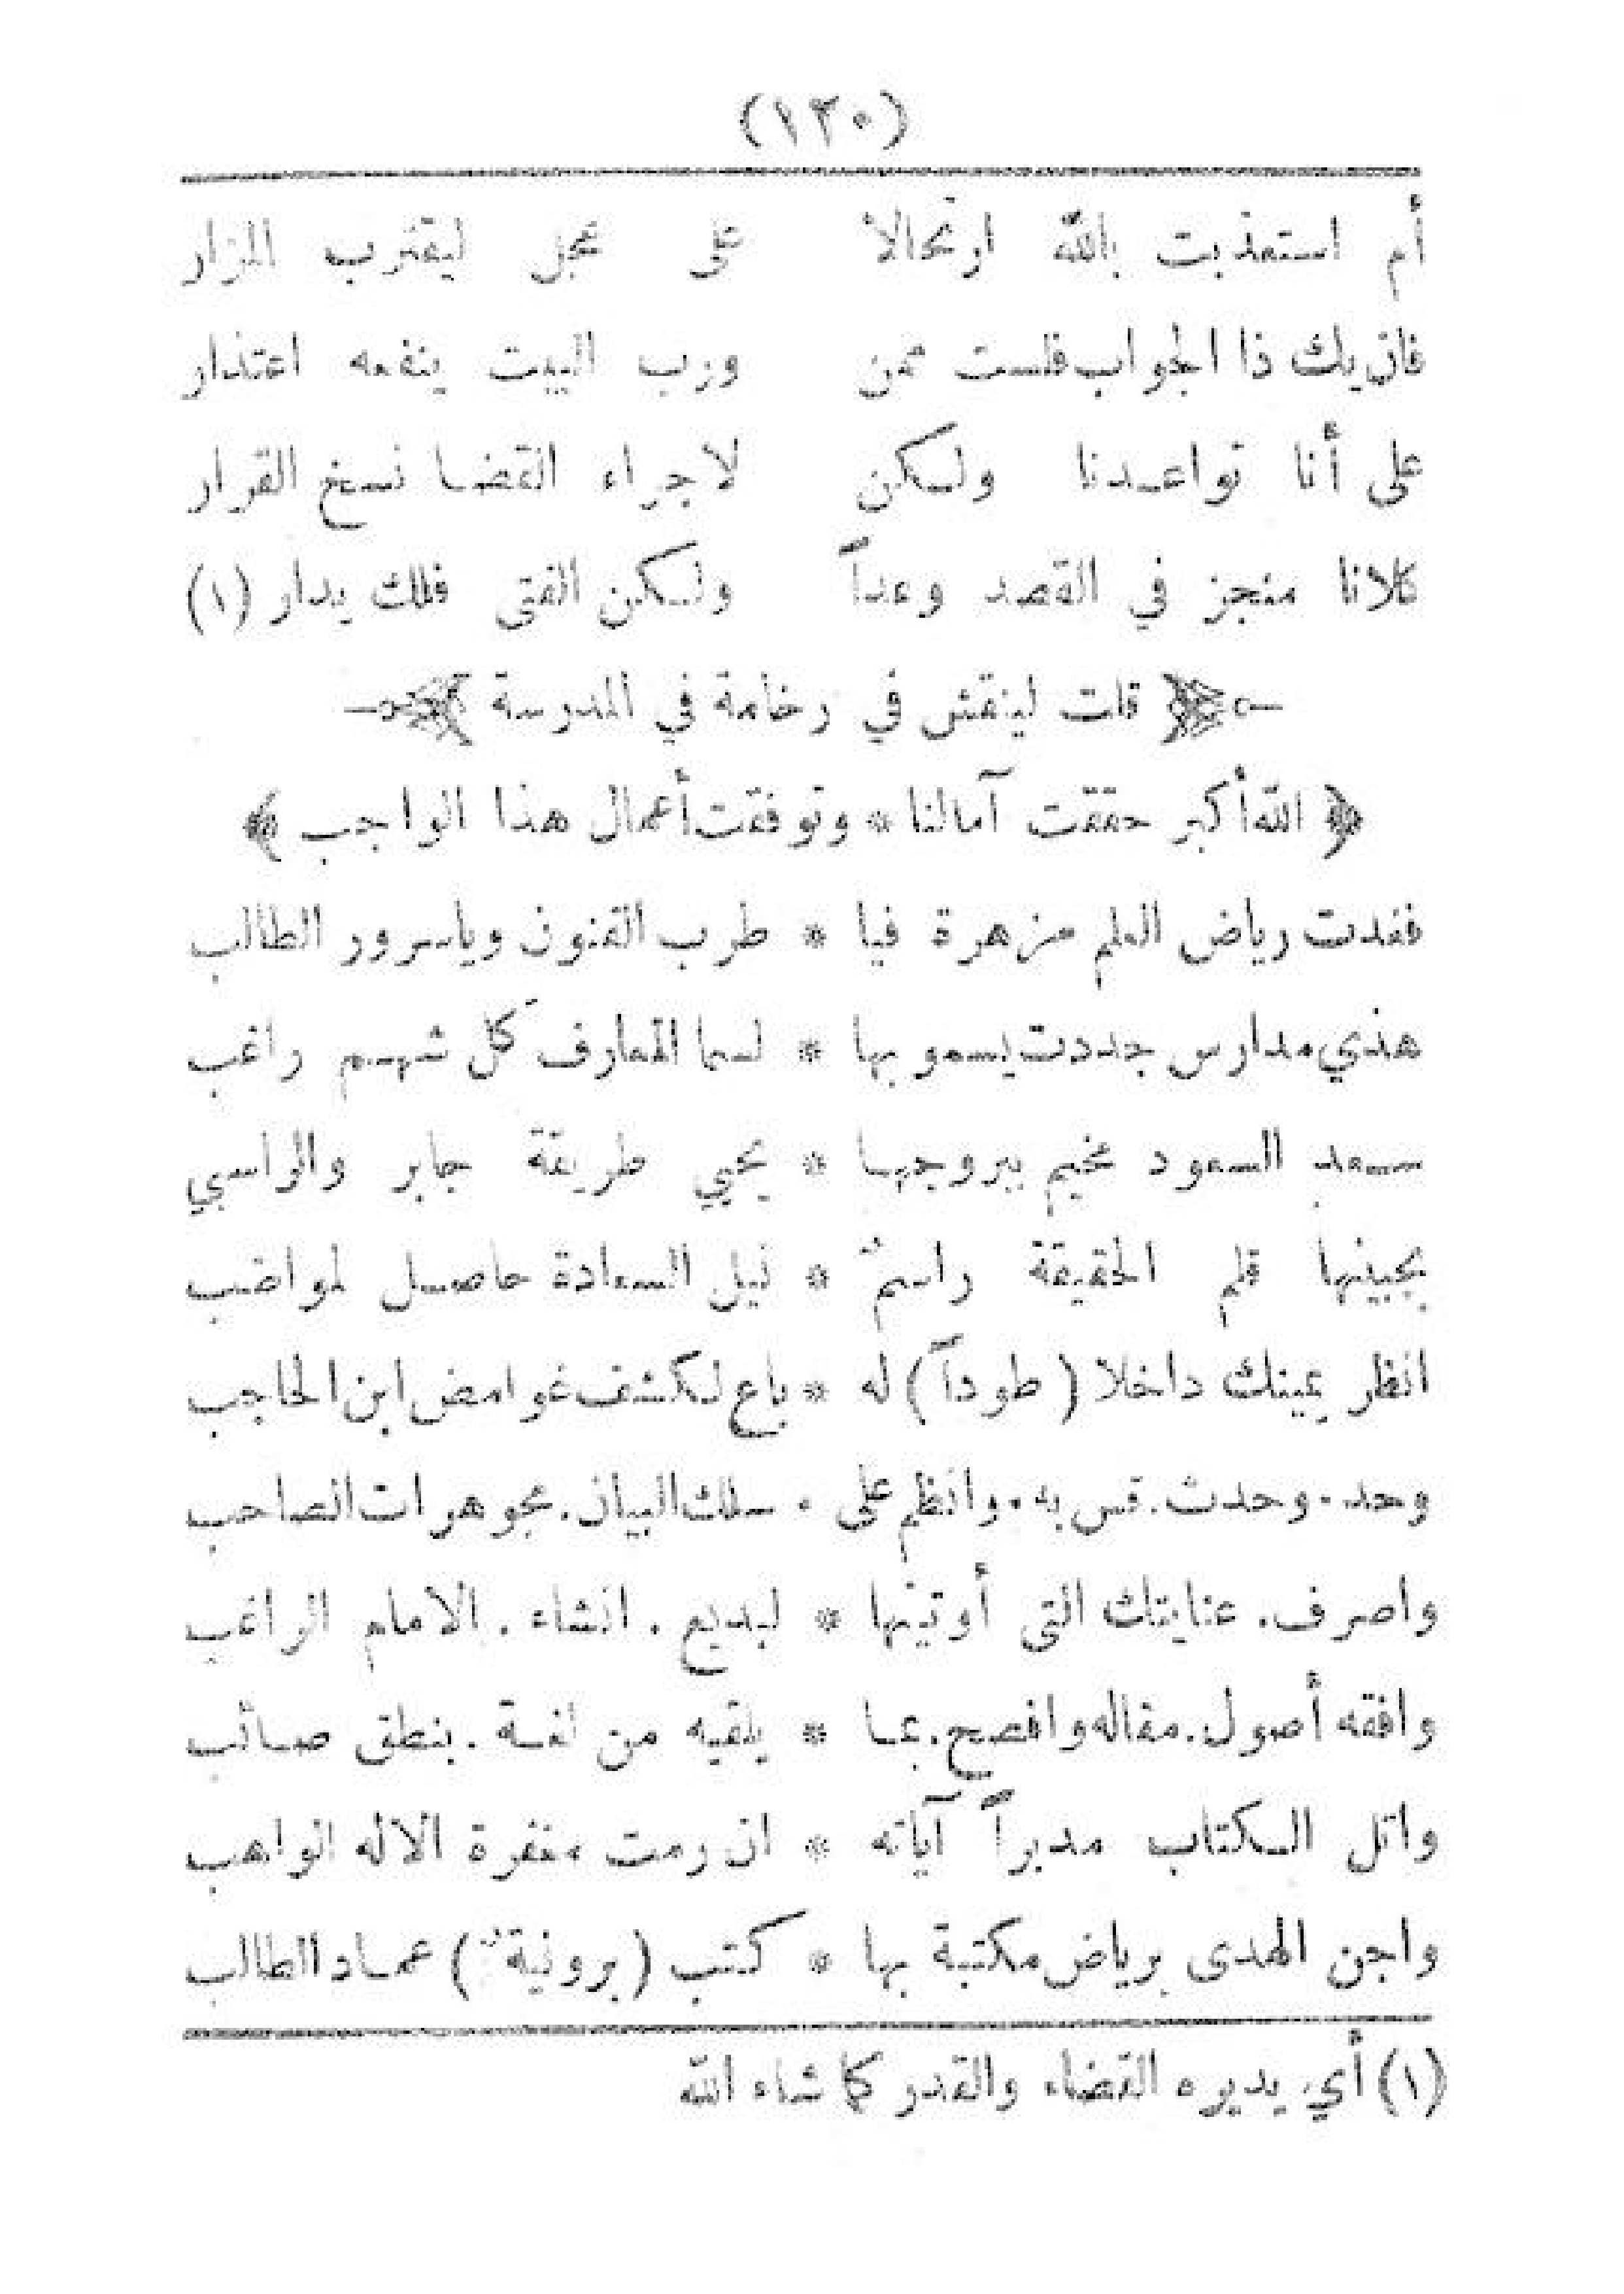 (١٣٠)
أم استعذبت بالله ارتحالا على عجل ليقترب المزار
فان يك ذا الجواب فلست ممن ورب البيت ينفعه اعتذار
على أنا تواعدنا ولكن لاجراء القضا نسخ القرار
كلانا منجز في القصد وعداً ولكن الفتى فلك يدار (١)
﴿ قلت لينقش في رخامة في المدرسة ﴾
﴿ الله أكبر حققت آمالنا * وتوفقت أعمال هذا الواجب ﴾
فغدت رياض العلم مزهرة فيا * طرب الفنون وياسرور الطالب
هذي مدارس جددت يسمو بها * لسما المعارف كل شهم راغب
سعد السعود مخيم ببروجها * يحيي طريقة جابر والراسبي
بجبينها قلم الحقيقة راسمٌ * نيل السعادة حاصل لمواضب
انظر بعينك داخلا (طوداً) له * باع لكشف غوامض ابن الحاجب
وحد. وحدث. قس به. وانظم على. سلك البيان. مجوهرات الصاحب
واصرف. عنايتك التى أوتيتها * لبديع. انشاء. الامام الراغب
وافقه أصول. مقاله وافصح. بما * يلقيه من لغة. بنطق صائب
واتل الكتاب مدبراً آياته * ان رمت مغفرة الاله الواهب
واجن الهدى برياض مكتبة بها * كتب (برونية) عماد الطالب
(١) أي يديره القضاء والقدر كما شاء الله